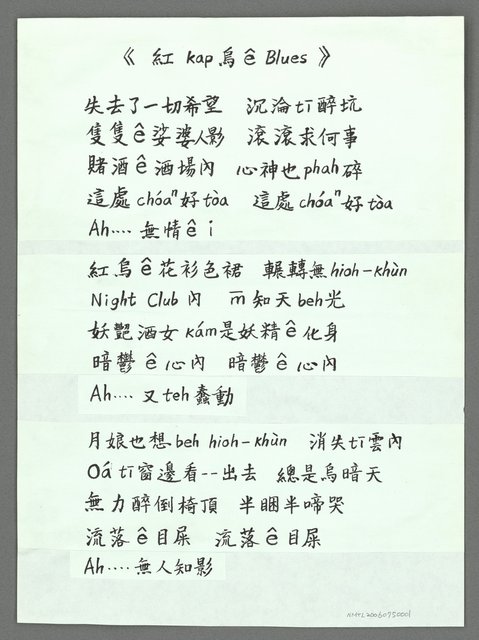 《 紅 kap烏ê Blues 》
失去了一切希望　沉淪tī醉坑
隻隻ê娑婆人影　滾滾求何事
賭酒ê酒場內　心神也phah碎
這處chóaⁿ好tòa　這處chóaⁿ好tòa
Ah‥‥ 無情ê i
紅烏ê花衫色裙　輾轉無hioh-khùn
Night Club內　m̄知天beh光
妖艷酒女kám是妖精ê化身
暗鬱ê心內　暗鬱ê心內
Ah‥‥ 又teh蠢動
月娘也想beh hioh-khùn　消失tī雲內
Oá tī窗邊看--出去　總是烏暗天
無力醉倒椅頂　半睏半啼哭
流落ê目屎　流落ê目屎
Ah‥‥無人知影
NMTL20060750001